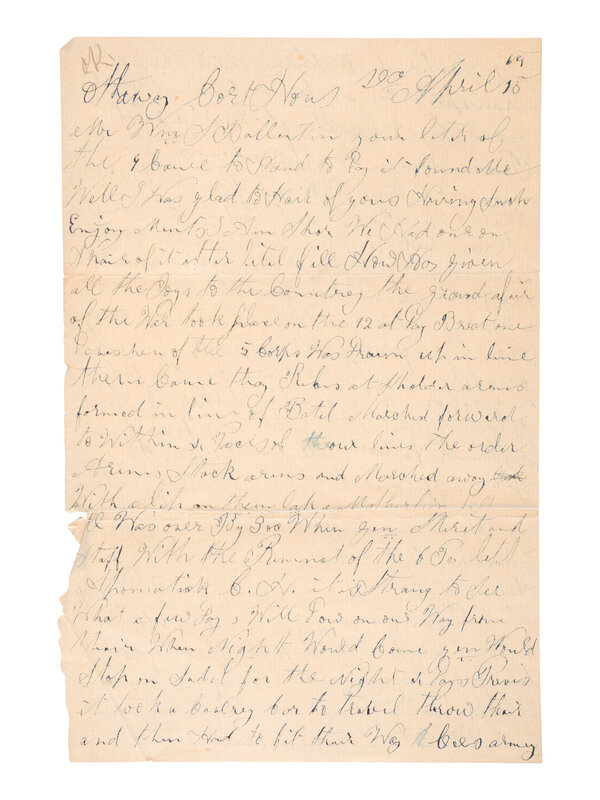 Cort Hous April 15 65
Mr Wm S Ballentin your leter of
the 9 Came to Hand to Day it found Me
Well I Was glad to Hair of yous Having Such
Enjoy Ments I Am Shor We Had one on
Shair of it after litel
all the to the Countrey the grand afair
of the War took place on the 12 at Day Breat one
of the 5 Corps Was Drawn up in line
then Came thay Rebs at Sholder arms
formed in line of Batel Marched forward
to Within 6 Paces of thour lines the order
Arms Stack arms and Marched away
With a
all Was over By 300 When gen and
Staff With the Remnet of the 6 left
C. H. it is Strang to See
What a few Day s Will Dow on our Way from
thair When Night Would Come gen Would
Stop in for the Night 6 Days Previs
it took a Cavlrey Cor to travel throw thair
and then Had to fit thair Way Lees army